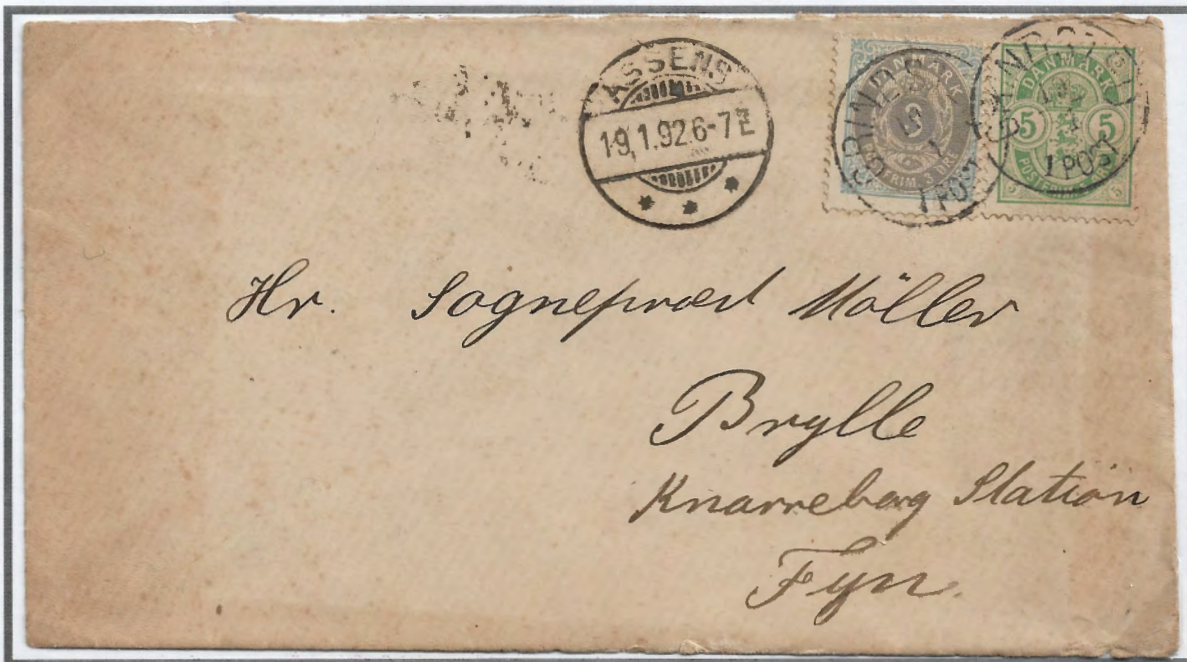 ASSENS
19.1.92.6-7E
DANMARK
3
POSTFRIM. 3 ØRE
1 POST
DANMARK
5 5
POSTFRIM. 5 ØRE
5 5
1 POST
Hr. Sognepræst Möller
Brylle
Knarreborg Station
Fyn.